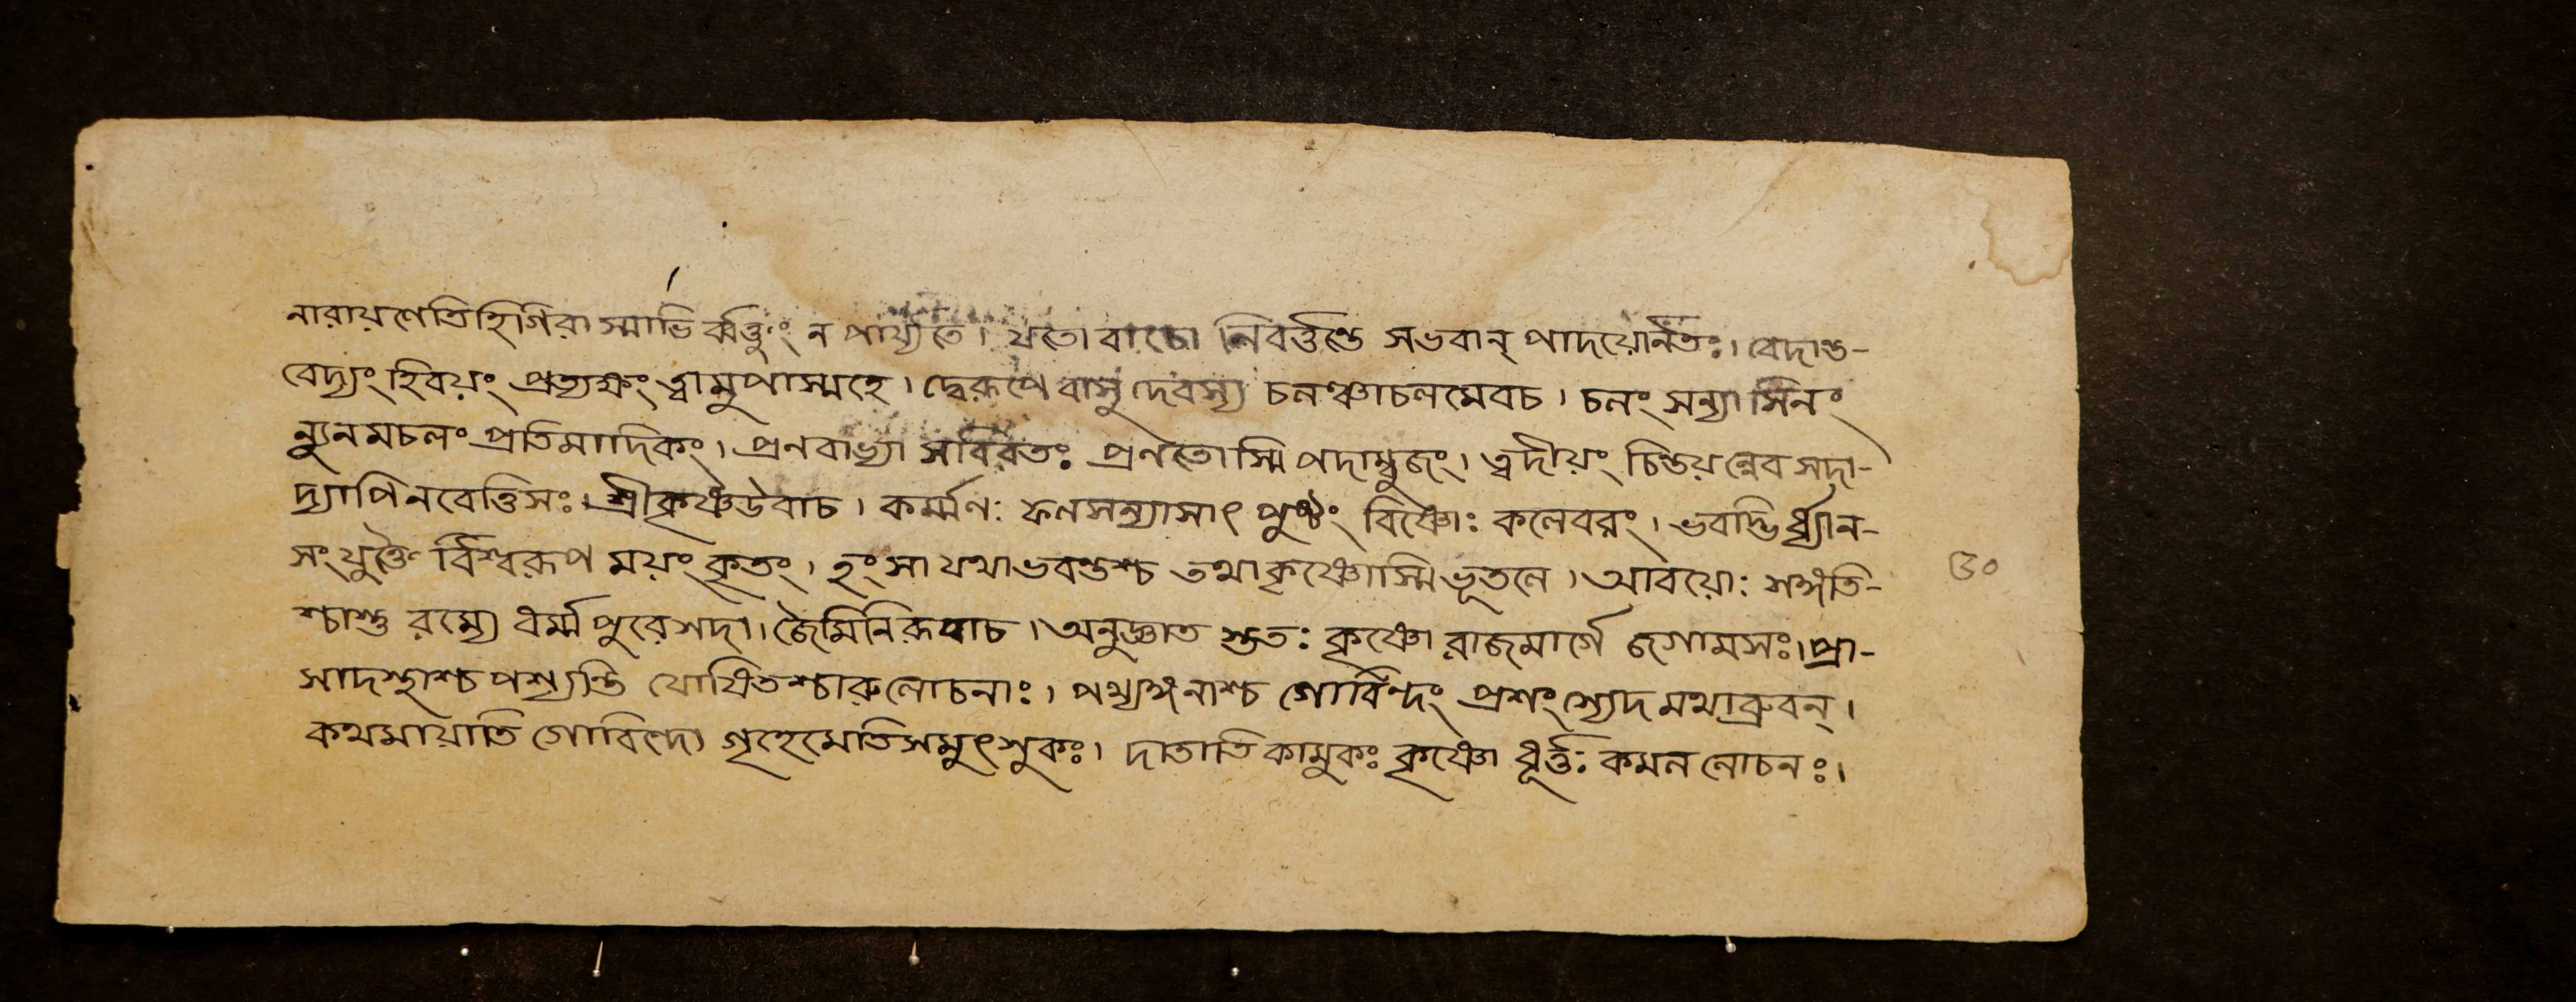 নারায়ণেতিহিগিরা স্মাভি র্ব্বক্তুং ন পার্য্যতে। যতো বাচো নিবর্ত্তন্তে সভবান্ পাদয়োর্নতঃ। বেদান্ত-
বেদ্যং হিবয়ং প্রত্যক্ষং ত্বামুপাস্মহে। দ্বেরূপে বাসুদেবস্য চলঞ্চাচলমেবচ। চলং সন্ন্যাসিনং
ন্যূনমচলং প্রতিমাদিকং। প্রণবাভ্যা সনিরতঃ প্রণতোস্মি পদাম্বুজং। ত্বদীয়ং চিন্তয়ন্নেব সদা-
দ্যাপিনবেত্তিসঃ। শ্রীকৃষ্ণউবাচ। কর্ম্মণঃ ফলসন্ন্যাসাৎ পুণ্যং বিষ্ণোঃ কলেবরং। ভবদ্ভির্ধ্যান-
সংযুক্তৈ র্বিশ্বরূপ ময়ং কৃতং। হংসা যথাভবন্তশ্চ তথা কৃষ্ণোস্মি ভূতলে। আবয়োঃ সঙ্গতি-
শ্চাস্তু রম্যে ধর্ম্মপুরেসদা। জৈমিনিরূবাচ। অনুজ্ঞাত স্ততঃ কৃষ্ণো রাজমার্গে জগামসঃ। প্রা-
সাদস্থাশ্চ পশ্যন্তি যোষিতশ্চারুলোচনাঃ। পণ্যঙ্গনাশ্চ গোবিন্দং প্রশংস্যেদ মথাব্রুবন্।
কথমায়াতি গোবিন্দো গৃহেমেতিসমুৎসুকঃ। দাতাতি কামুকঃ কৃষ্ণো ধূর্ত্তঃ কমল লোচনঃ।
৩০